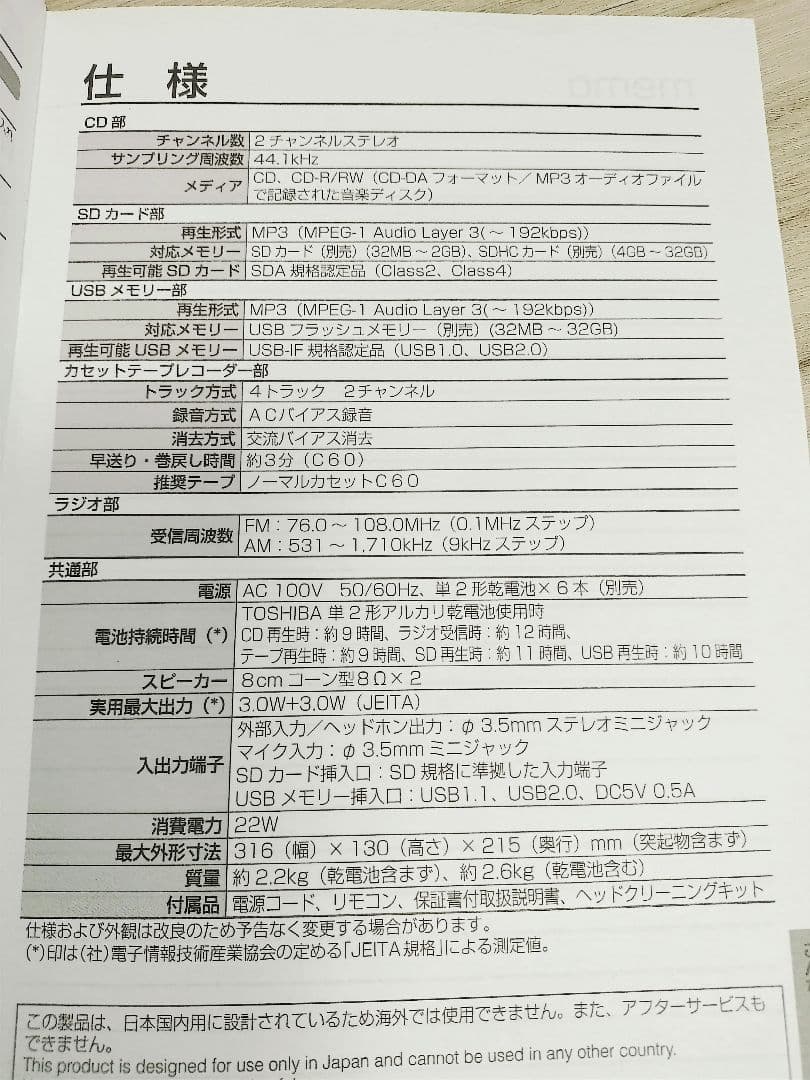 仕 様
CD部
チャンネル数 2チャンネルステレオ
サンプリング周波数 44.1kHz
メディア CD、CD-R/RW（CD-DAフォーマット／MP3オーディオファイル
で記録された音楽ディスク）
SDカード部
再生形式 MP3（MPEG-1 Audio Layer 3(～192kbps)）
対応メモリー SDカード（別売）（32MB～2GB）、SDHCカード（別売）（4GB～32GB）
再生可能SDカード SDA規格認定品（Class2、Class4）
USBメモリー部
再生形式 MP3（MPEG-1 Audio Layer 3(～192kbps)）
対応メモリー USBフラッシュメモリー（別売）（32MB～32GB）
再生可能USBメモリー USB-IF規格認定品（USB1.0、USB2.0）
カセットテープレコーダー部
トラック方式 4トラック 2チャンネル
録音方式 ACバイアス録音
消去方式 交流バイアス消去
早送り・巻戻し時間 約3分（C60）
推奨テープ ノーマルカセットC60
ラジオ部
受信周波数 FM：76.0～108.0MHz（0.1MHzステップ）
AM：531～1,710kHz（9kHzステップ）
共通部
電源 AC 100V 50/60Hz、単2形乾電池×6本（別売）
電池持続時間（*） TOSHIBA 単2形アルカリ乾電池使用時
CD再生時：約9時間、ラジオ受信時：約12時間、
テープ再生時：約9時間、SD再生時：約11時間、USB再生時：約10時間
スピーカー 8cmコーン型8Ω×2
実用最大出力（*） 3.0W+3.0W（JEITA）
入出力端子 外部入力／ヘッドホン出力：φ3.5mmステレオミニジャック
マイク入力：φ3.5mmミニジャック
SDカード挿入口：SD規格に準拠した入力端子
USBメモリー挿入口：USB1.1、USB2.0、DC5V 0.5A
消費電力 22W
最大外形寸法 316（幅）×130（高さ）×215（奥行）mm（突起物含まず）
質量 約2.2kg（乾電池含まず）、約2.6kg（乾電池含む）
付属品 電源コード、リモコン、保証書付取扱説明書、ヘッドクリーニングキット
仕様および外観は改良のため予告なく変更する場合があります。
(*)印は(社)電子情報技術産業協会の定める「JEITA規格」による測定値。
この製品は、日本国内用に設計されているため海外では使用できません。また、アフターサービスも
できません。
This product is designed for use only in Japan and cannot be used in any other country.